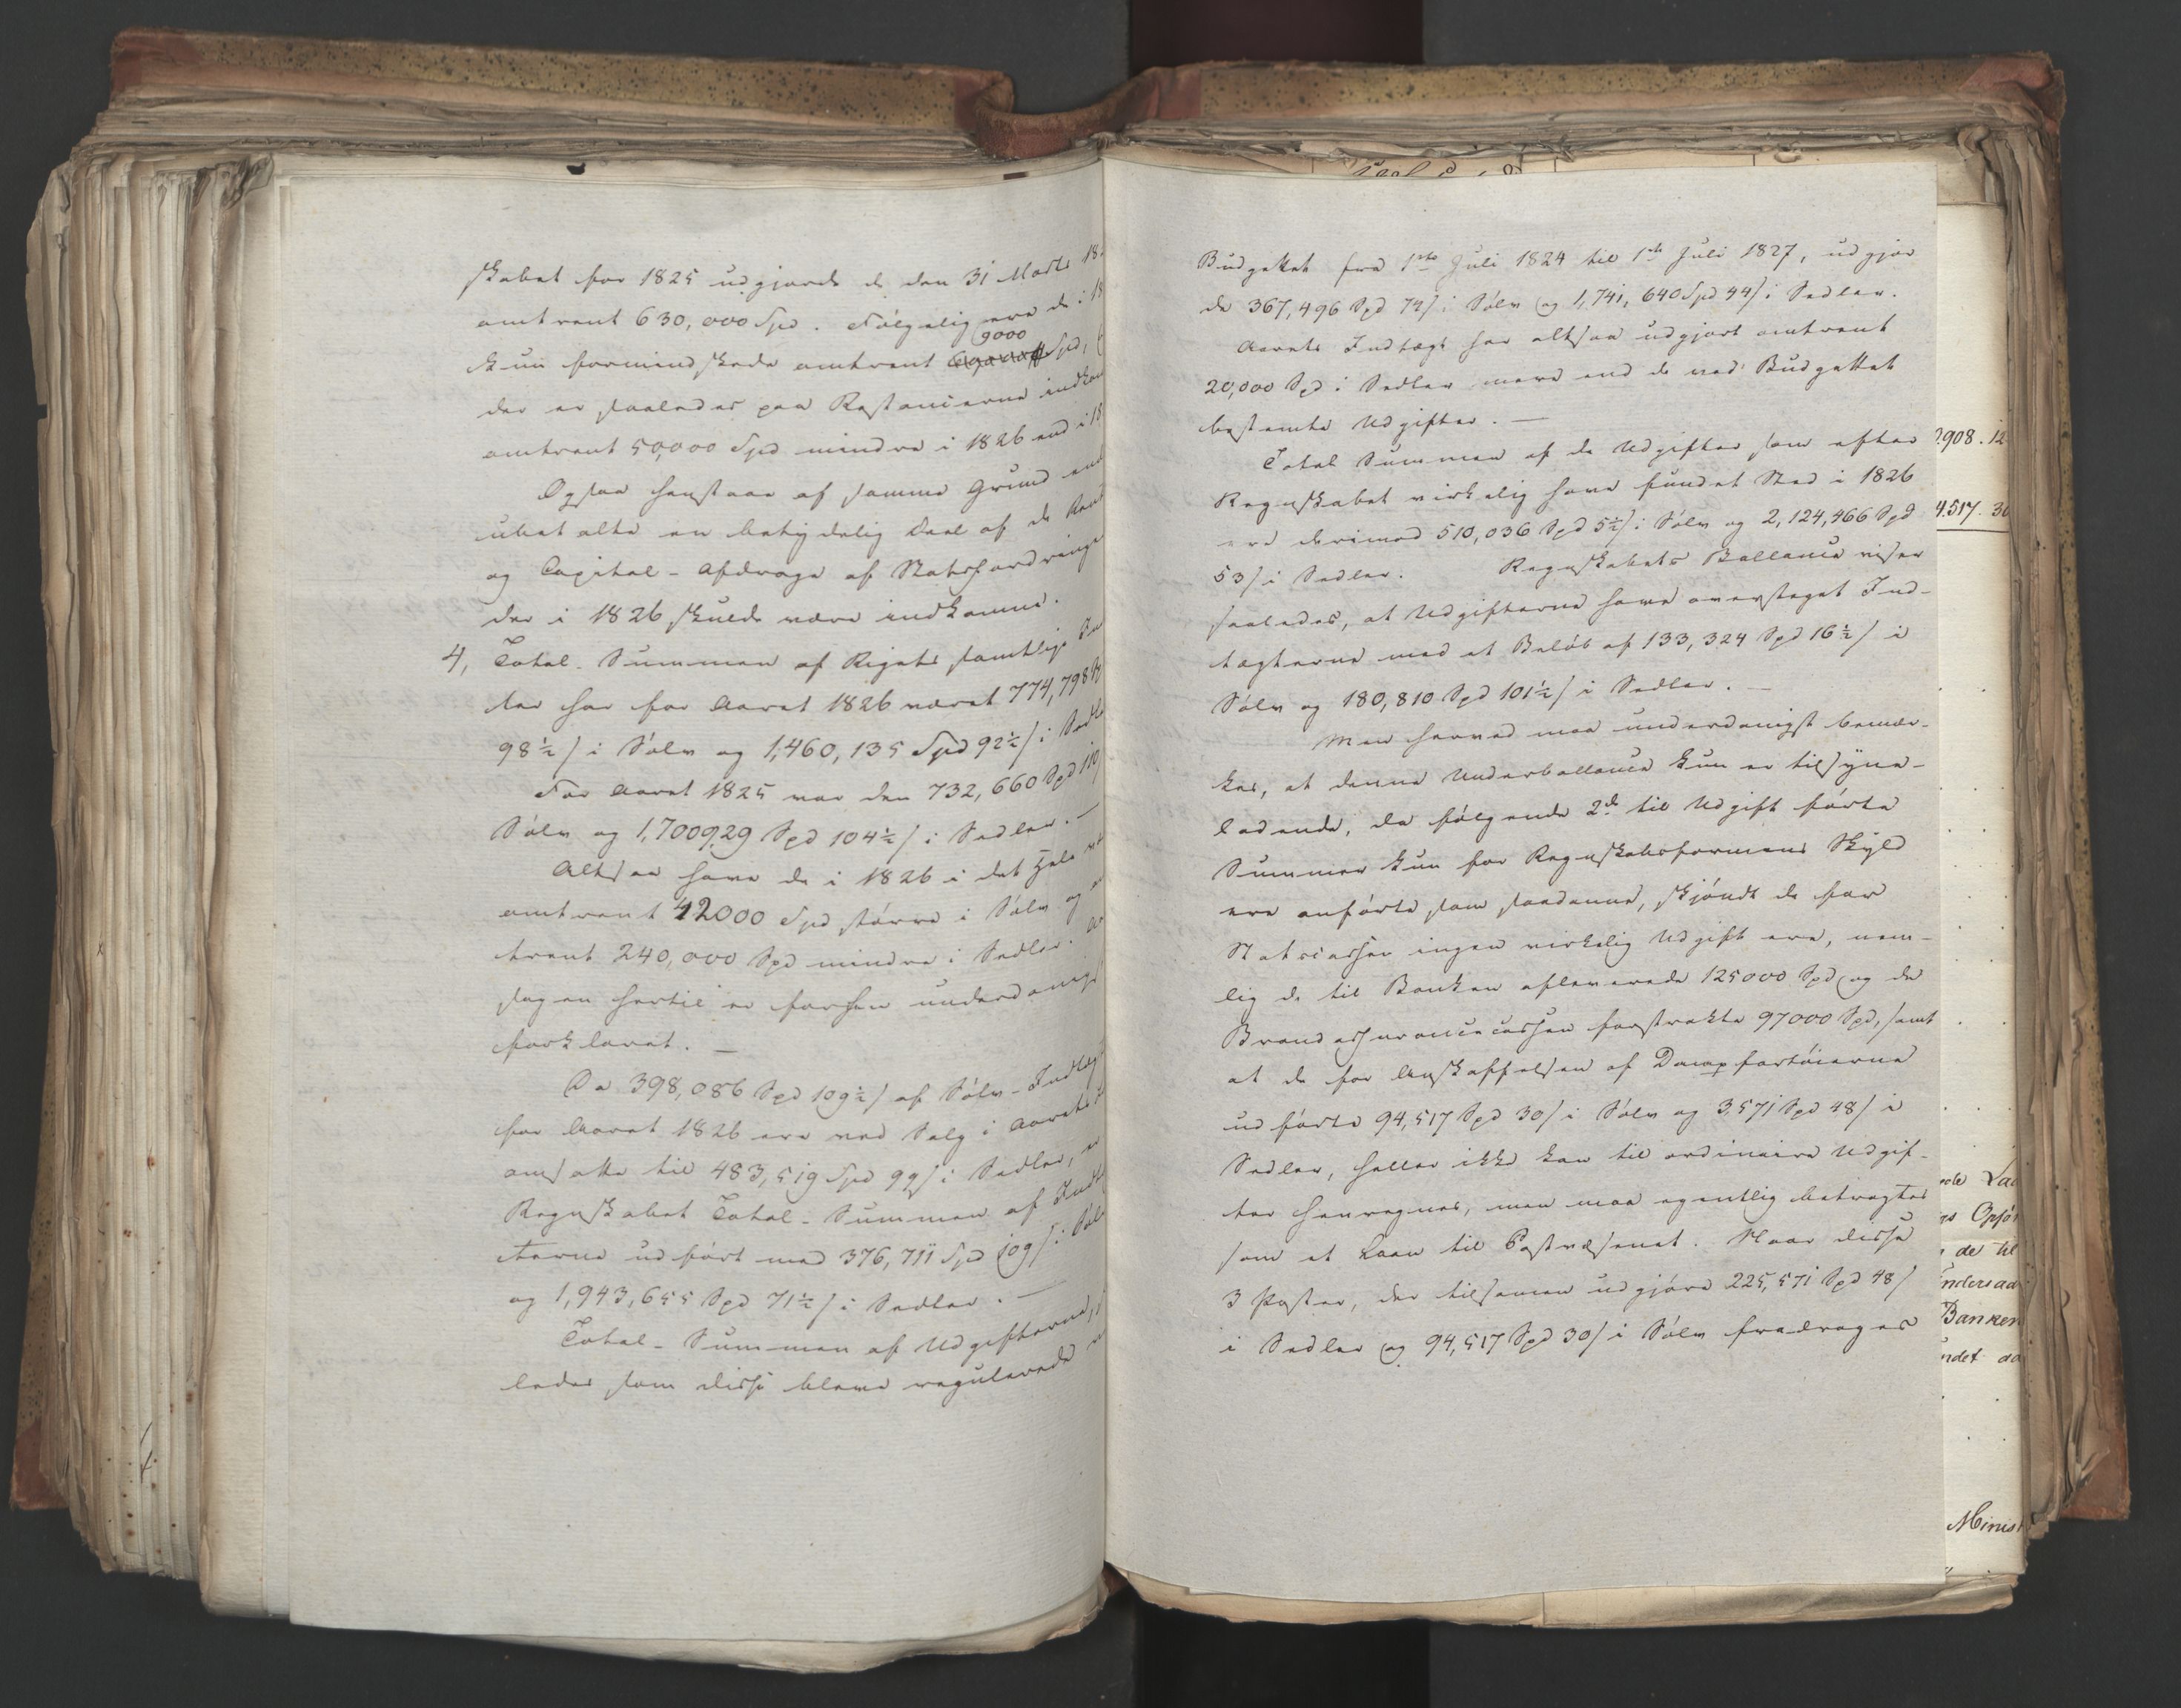 skabet for 1825 udgjorde de den 31 Marts 18
omtrent 630,000 Spd. Følgelig ere de i 18
9000
kun formindskede omtrent Spd,
der er saaledes paa Restancerne indkom
omtrent 50,000 Spd mindre i 1826 end i 18
Ogsaa henstaae af samme Grund end
ubetalte en betydelig Deel af de Rent
og Capital-Afdrage af Statsfordringe
der i 1826 skulde være indkomne.
4, Total-Summen af Rigets samtlige In
ter har for Aaret 1826 været 774,798 Sp
98½ s i Sølv og 1,460,135 Spd 92½ s i Sedle
For Aaret 1825 var den 732,660 Spd 110
Sølv og 1,700929 Spd 104½ s i Sedler. —
Altsaa have de i 1826 i det Hele
omtrent 42000 Spd større i Sølv og
trent 240,000 Spd mindre i Sedler.
sagen hertil er forhen underdanigst
forklaret. —
Da 398,086 Spd 109½ s af Sølv-Indtægt
for Aaret 1826 ere ved Salg i Aarets
omsatte til 483,519 Spd 99 s i Sedler, er
Regnskabet Total-Summen af Indtæ
terne udført med 376,711 Spd 109 s i Sølv
og 1,943,655 Spd 71½ s i Sedler. —
Total-Summen af Udgifterne,
ledes som disse bleve regulerede
Budgettet fra 1ste Juli 1824 til 1ste Juli 1827, udgjør
de 367,496 Spd 74 s i Sølv og 1,741,640 Spd 44 s i Sedler.
Aarets Indtægt har altsaa udgjort omtrent
20,000 Spd i Sedler mere end de ved Budgettet
bestemte Udgifter. —
Total Summen af de Udgifter som efter
Regnskabet virkelig have fundet Sted i 1826
ere derimod 510,036 Spd 5½ s i Sølv og 2,124,466 Spd
53 s i Sedler. Regnskabets Ballance viser
saaledes, at Udgifterne have oversteget Ind-
tægterne med et Beløb af 133,324 Spd 16½ s i
Sølv og 180,810 Spd 101½ s i Sedler. —
Men herved maa underdanigst bemær-
kes, at denne Underballance kun er tilsyne-
ladende, da følgende 2de til Udgift førte
Summer kun for Regnskabsformens Skyld
ere anførte som saadanne, skjøndt de for
Statscassen ingen virkelig Udgift ere, nem-
lig de til Banken afleverede 125000 Spd og de
Brandassurancecassen forstrakte 97000 Spd, samt
at de for Anskaffelsen af Dampfartøierne
udførte 94,517 Spd 30 s i Sølv og 3,571 Spd 48 s i
Sedler, heller ikke kan til ordinaire Udgif-
ter henregnes, men maa egentlig betragtes
som et Laan til Postvæsenet. Naar disse
3 Poster, der tilsammen udgjøre 225,571 Spd 48 s
i Sedler og 94,517 Spd 30 s i Sølv fradrages
908. 12
4.517. 30
de til
Banken
Minis